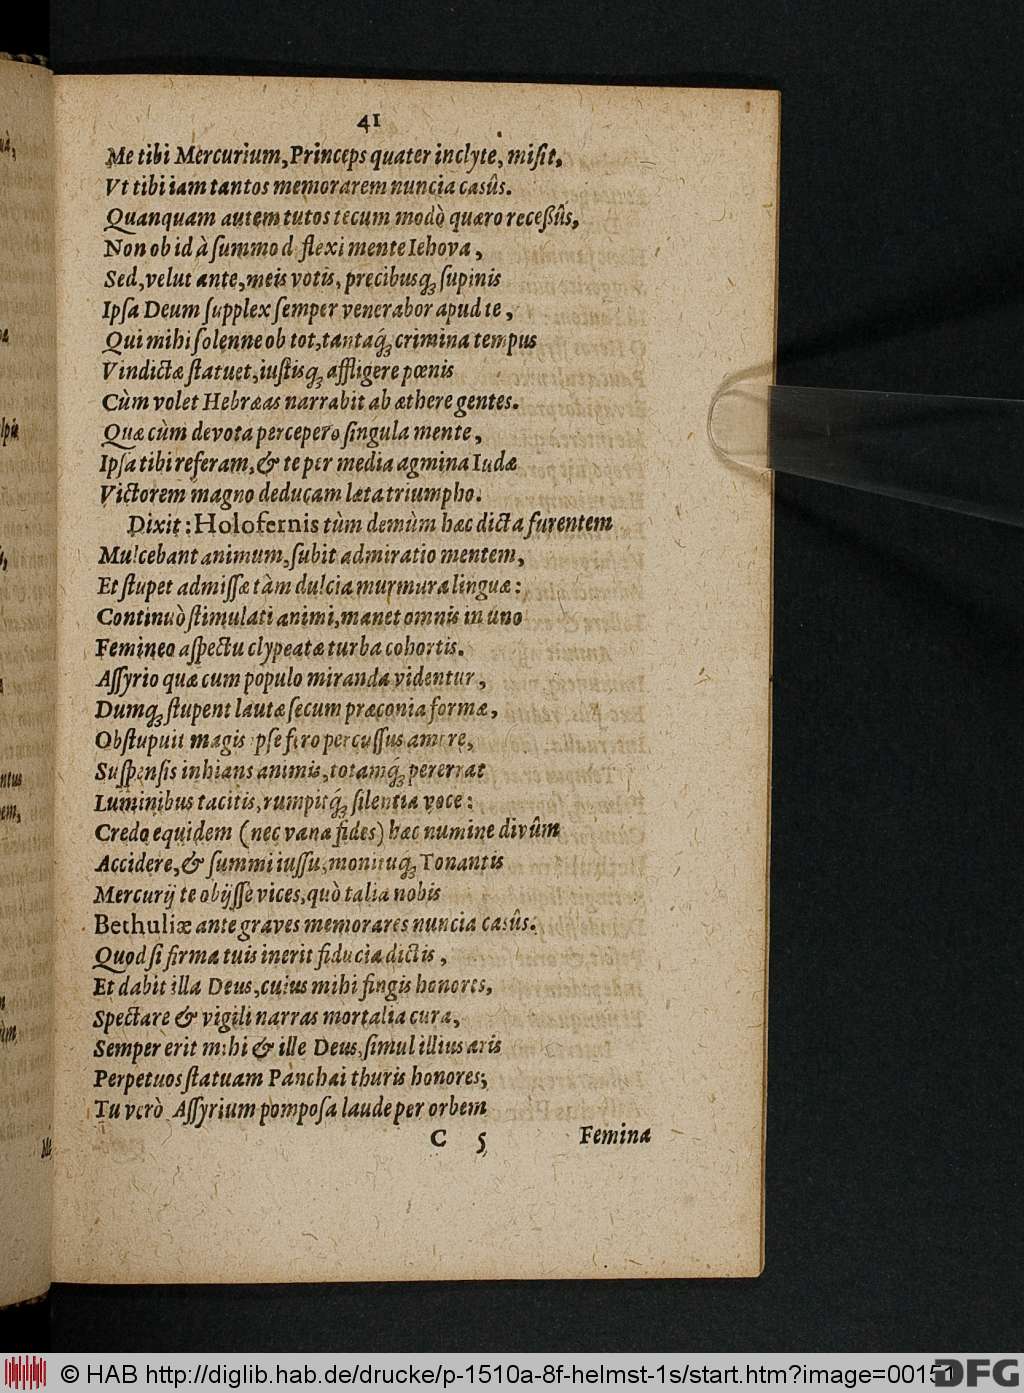 41
Me tibi Mercurium, Princeps quater inclyte, misit,
Ut tibi iam tantos memorarem nuncia casûs.
Quanquam autem tutos tecum modò quæro receßûs,
Non ob id à summo d flexi mente Iehova,
Sed, velut ante, meis votis, precibusq́; supinis
Ipsa Deum supplex semper venerabor apud te,
Qui mihi solenne ob tot, tantaq́; crimina tempus
Vindictæ statuet, iustisq́; affligere pœnis
Cùm volet Hebræas narrabit ab æthere gentes.
Quæ cùm devota percepero singula mente,
Ipsa tibi referam, & te per media agmina Iudæ
Victorem magno deducam læta triumpho.
Dixit: Holofernis tùm demùm hæc dicta furentem
Mulcebant animum, subit admiratio mentem,
Et stupet admissæ tàm dulcia murmura linguæ:
Continuò stimulati animi, manet omnis in uno
Femineo aspectu clypeatæ turba cohortis.
Assyrio quæ cum populo miranda videntur,
Dumq́; stupent lautæ secum præconia formæ,
Obstupuit magis pse fero percussus amore,
Suspensis inhians animis, totamq́; pererrat
Luminibus tacitis, rumpitq́; silentia voce:
Credo equidem (nec vana fides) hæc numine divûm
Accidere, & summi iussu, monituq́; Tonantis
Mercurij te obijsse vices, quò talia nobis
Bethuliæ ante graves memorares nuncia casûs.
Quod si firma tuis inerit fiducia dictis,
Et dabit illa Deus, cuius mihi fingis honores,
Spectare & vigili narras mortalia cura,
Semper erit mihi & ille Deus, simul illius aris
Perpetuos statuam Panchai thuris honores;
Tu verò Assyrium pomposa laude per orbem
C 5 Femina
© HAB http://diglib.hab.de/drucke/p-1510a-8f-helmst-1s/start.htm?image=00151
DFG